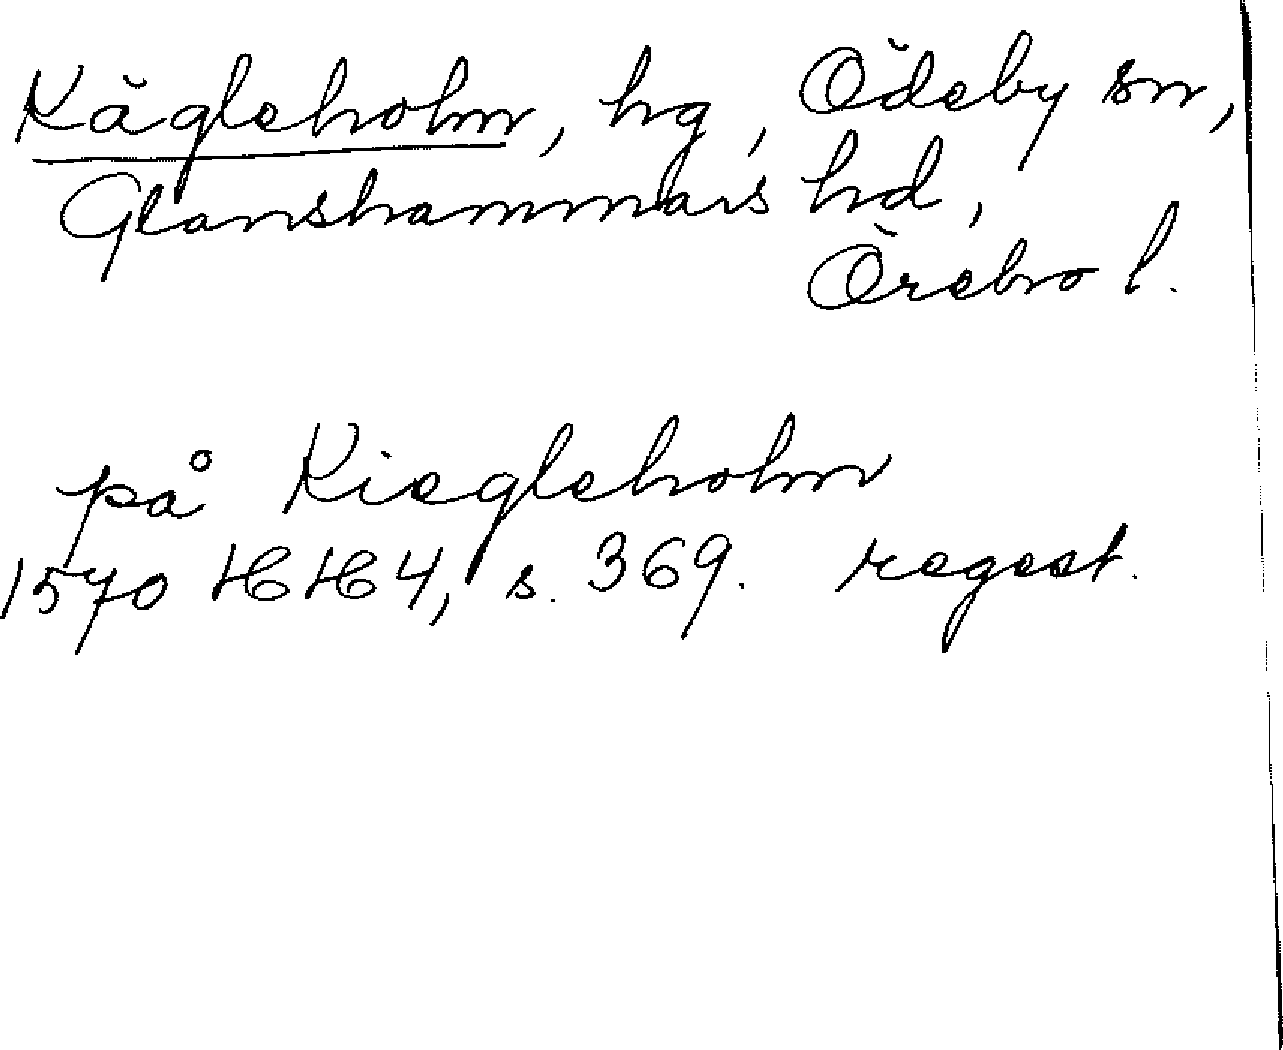 Kägleholm, hg, Ödeby sn,
Glanshammars hd,
Örebro l.
på Kiegleholm
1570 HH 4, s. 369. regest.